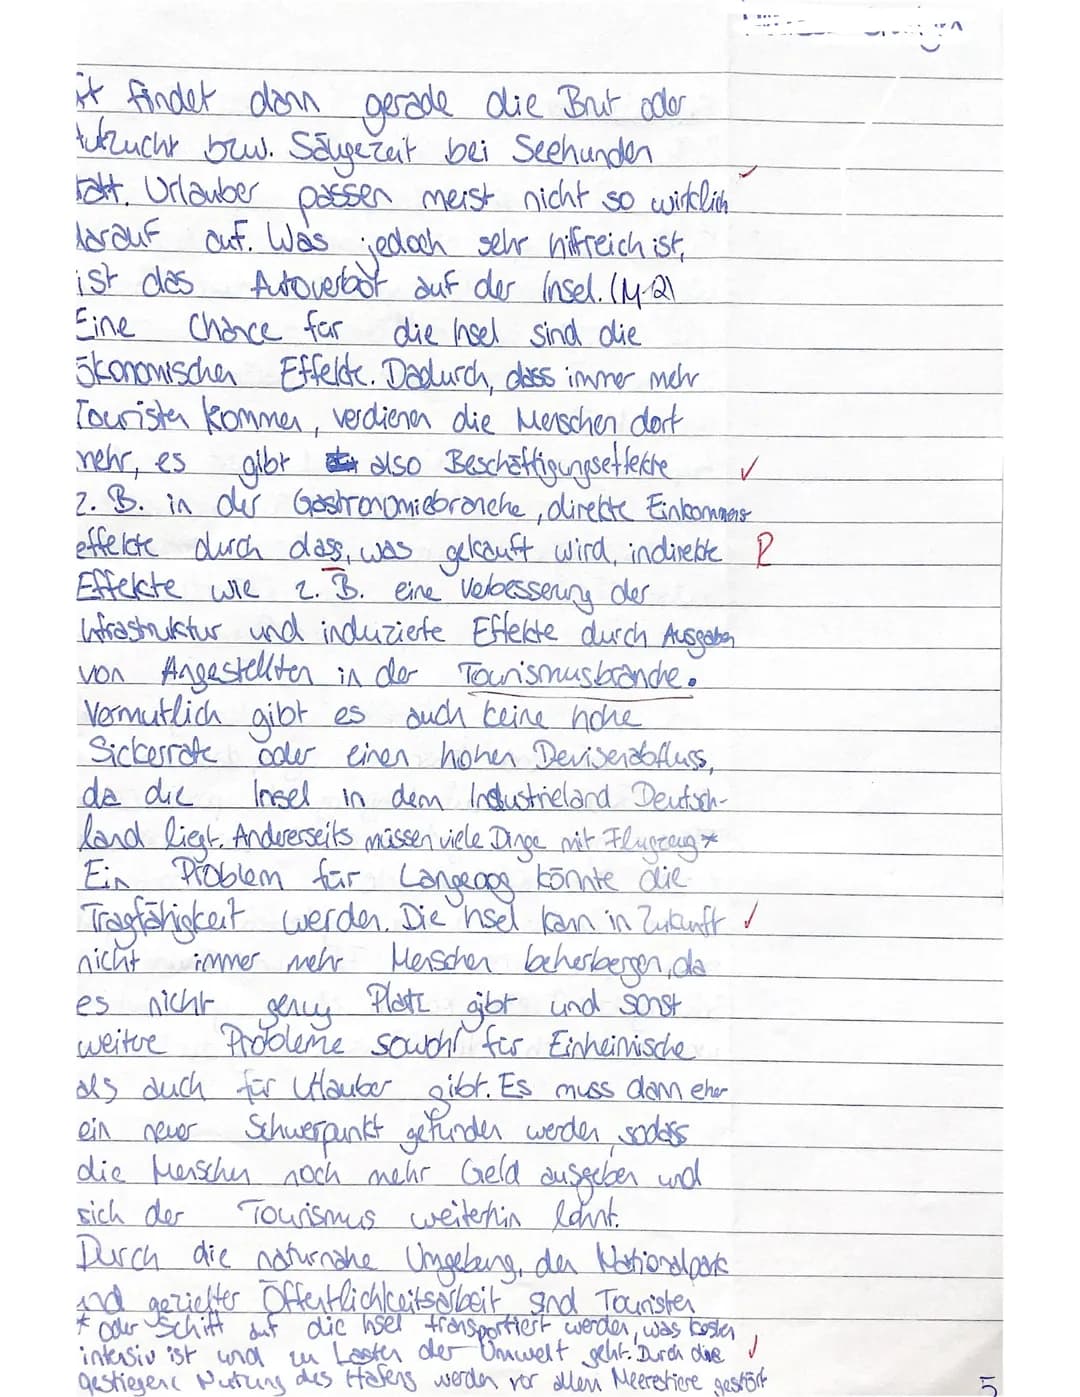 it findet dann gerade die Brut oder
aufzucht bzw. Säugezeit bei Seehunden
statt. Urlauber passen meist nicht so wirklich
darauf auf. Was jedoch sehr hilfreich ist,
ist das Autoverbot auf der Insel. (M2)
Eine Chance für die Insel sind die
ökonomischen Effekte. Dadurch, dass immer mehr
Touristen kommen, verdienen die Menschen dort
mehr, es gibt also Beschäftigungseffekte
z. B. in der Gastronomiebranche, direkte Einkommens-
effekte durch dass, was gekauft wird, indirekte R
Effekte wie z. B. eine Verbesserung der
Infrastruktur und induzierte Effekte durch Ausgaben
von Angestellten in der Tourismusbranche.
Vermutlich gibt es auch keine hohe
Sickerrate oder einen hohen Devisenabfluss,
da die Insel in dem Industrieland Deutsch-
land liegt. Andererseits müssen viele Dinge mit Flugzeug*
Ein Problem für Langeoog könnte die
Tragfähigkeit werden. Die Insel kann in Zukunft
nicht immer mehr Menschen beherbergen, da
es nicht genug Platz gibt und sonst
weitere Probleme sowohl für Einheimische
als auch für Urlauber gibt. Es muss dann eher
ein neuer Schwerpunkt gefunden werden, sodass
die Menschen noch mehr Geld ausgeben und
sich der Tourismus weiterhin lohnt.
Durch die naturnahe Umgebung, den Nationalpark
und gezielter Öffentlichkeitsarbeit sind Touristen
* oder Schiff auf die Insel transportiert werden, was kosten
intensiv ist und zu Lasten der Umwelt geht. Durch die
gestiegene Nutzung des Hafens werden vor allem Meerestiere gestört
5